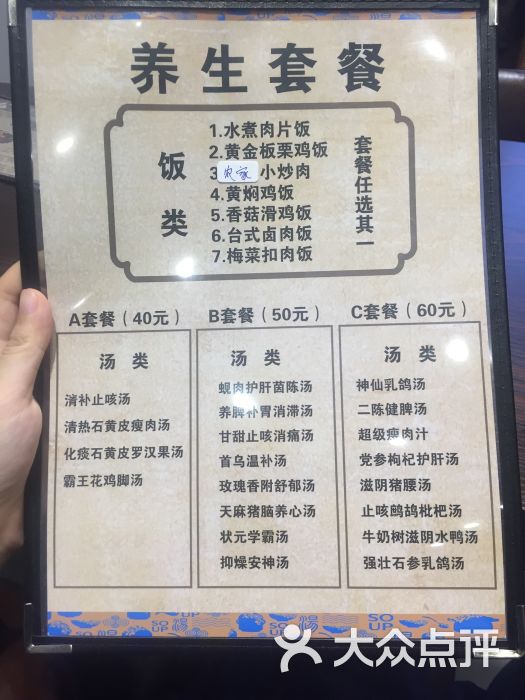 养生套餐
饭类
1.水煮肉片饭
2.黄金板栗鸡饭
3农家小炒肉
4.黄焖鸡饭
5.香菇滑鸡饭
6.台式卤肉饭
7.梅菜扣肉饭
套餐任选其一
A套餐（40元）
汤类
消补止咳汤
清热石黄皮瘦肉汤
化痰石黄皮罗汉果汤
霸王花鸡脚汤
B套餐（50元）
汤类
蚬肉护肝茵陈汤
养脾补胃消滞汤
甘甜止咳消痛汤
首乌温补汤
玫瑰香附舒郁汤
天麻猪脑养心汤
状元学霸汤
抑燥安神汤
C套餐（60元）
汤类
神仙乳鸽汤
二陈健脾汤
超级瘦肉汁
党参枸杞护肝汤
滋阴猪腰汤
止咳鹧鸪枇杷汤
牛奶树滋阴水鸭汤
强壮石参乳鸽汤
SO UP 汤
SO UP 汤
大众点评